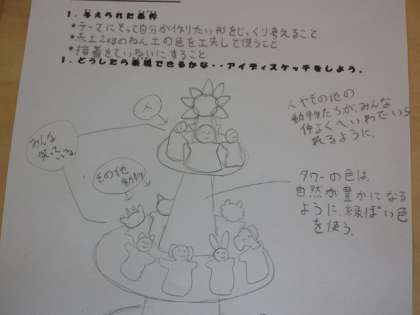 1. 与えられた条件
*テーマにそって自分が作りたい形をじっくり考えること
*点土2kgのねん土の色を工夫して使うこと
*接着をていねいにすること
1. どうしたら表現できるかな・・アイディスケッチをしよう。
人
みんな
その他
動物
人やその他の
動物たちが、みんな
仲よくへいわでいら
れるように。
タワーの色は、
自然が豊かになる
ように、緑ぽい色
を使う。